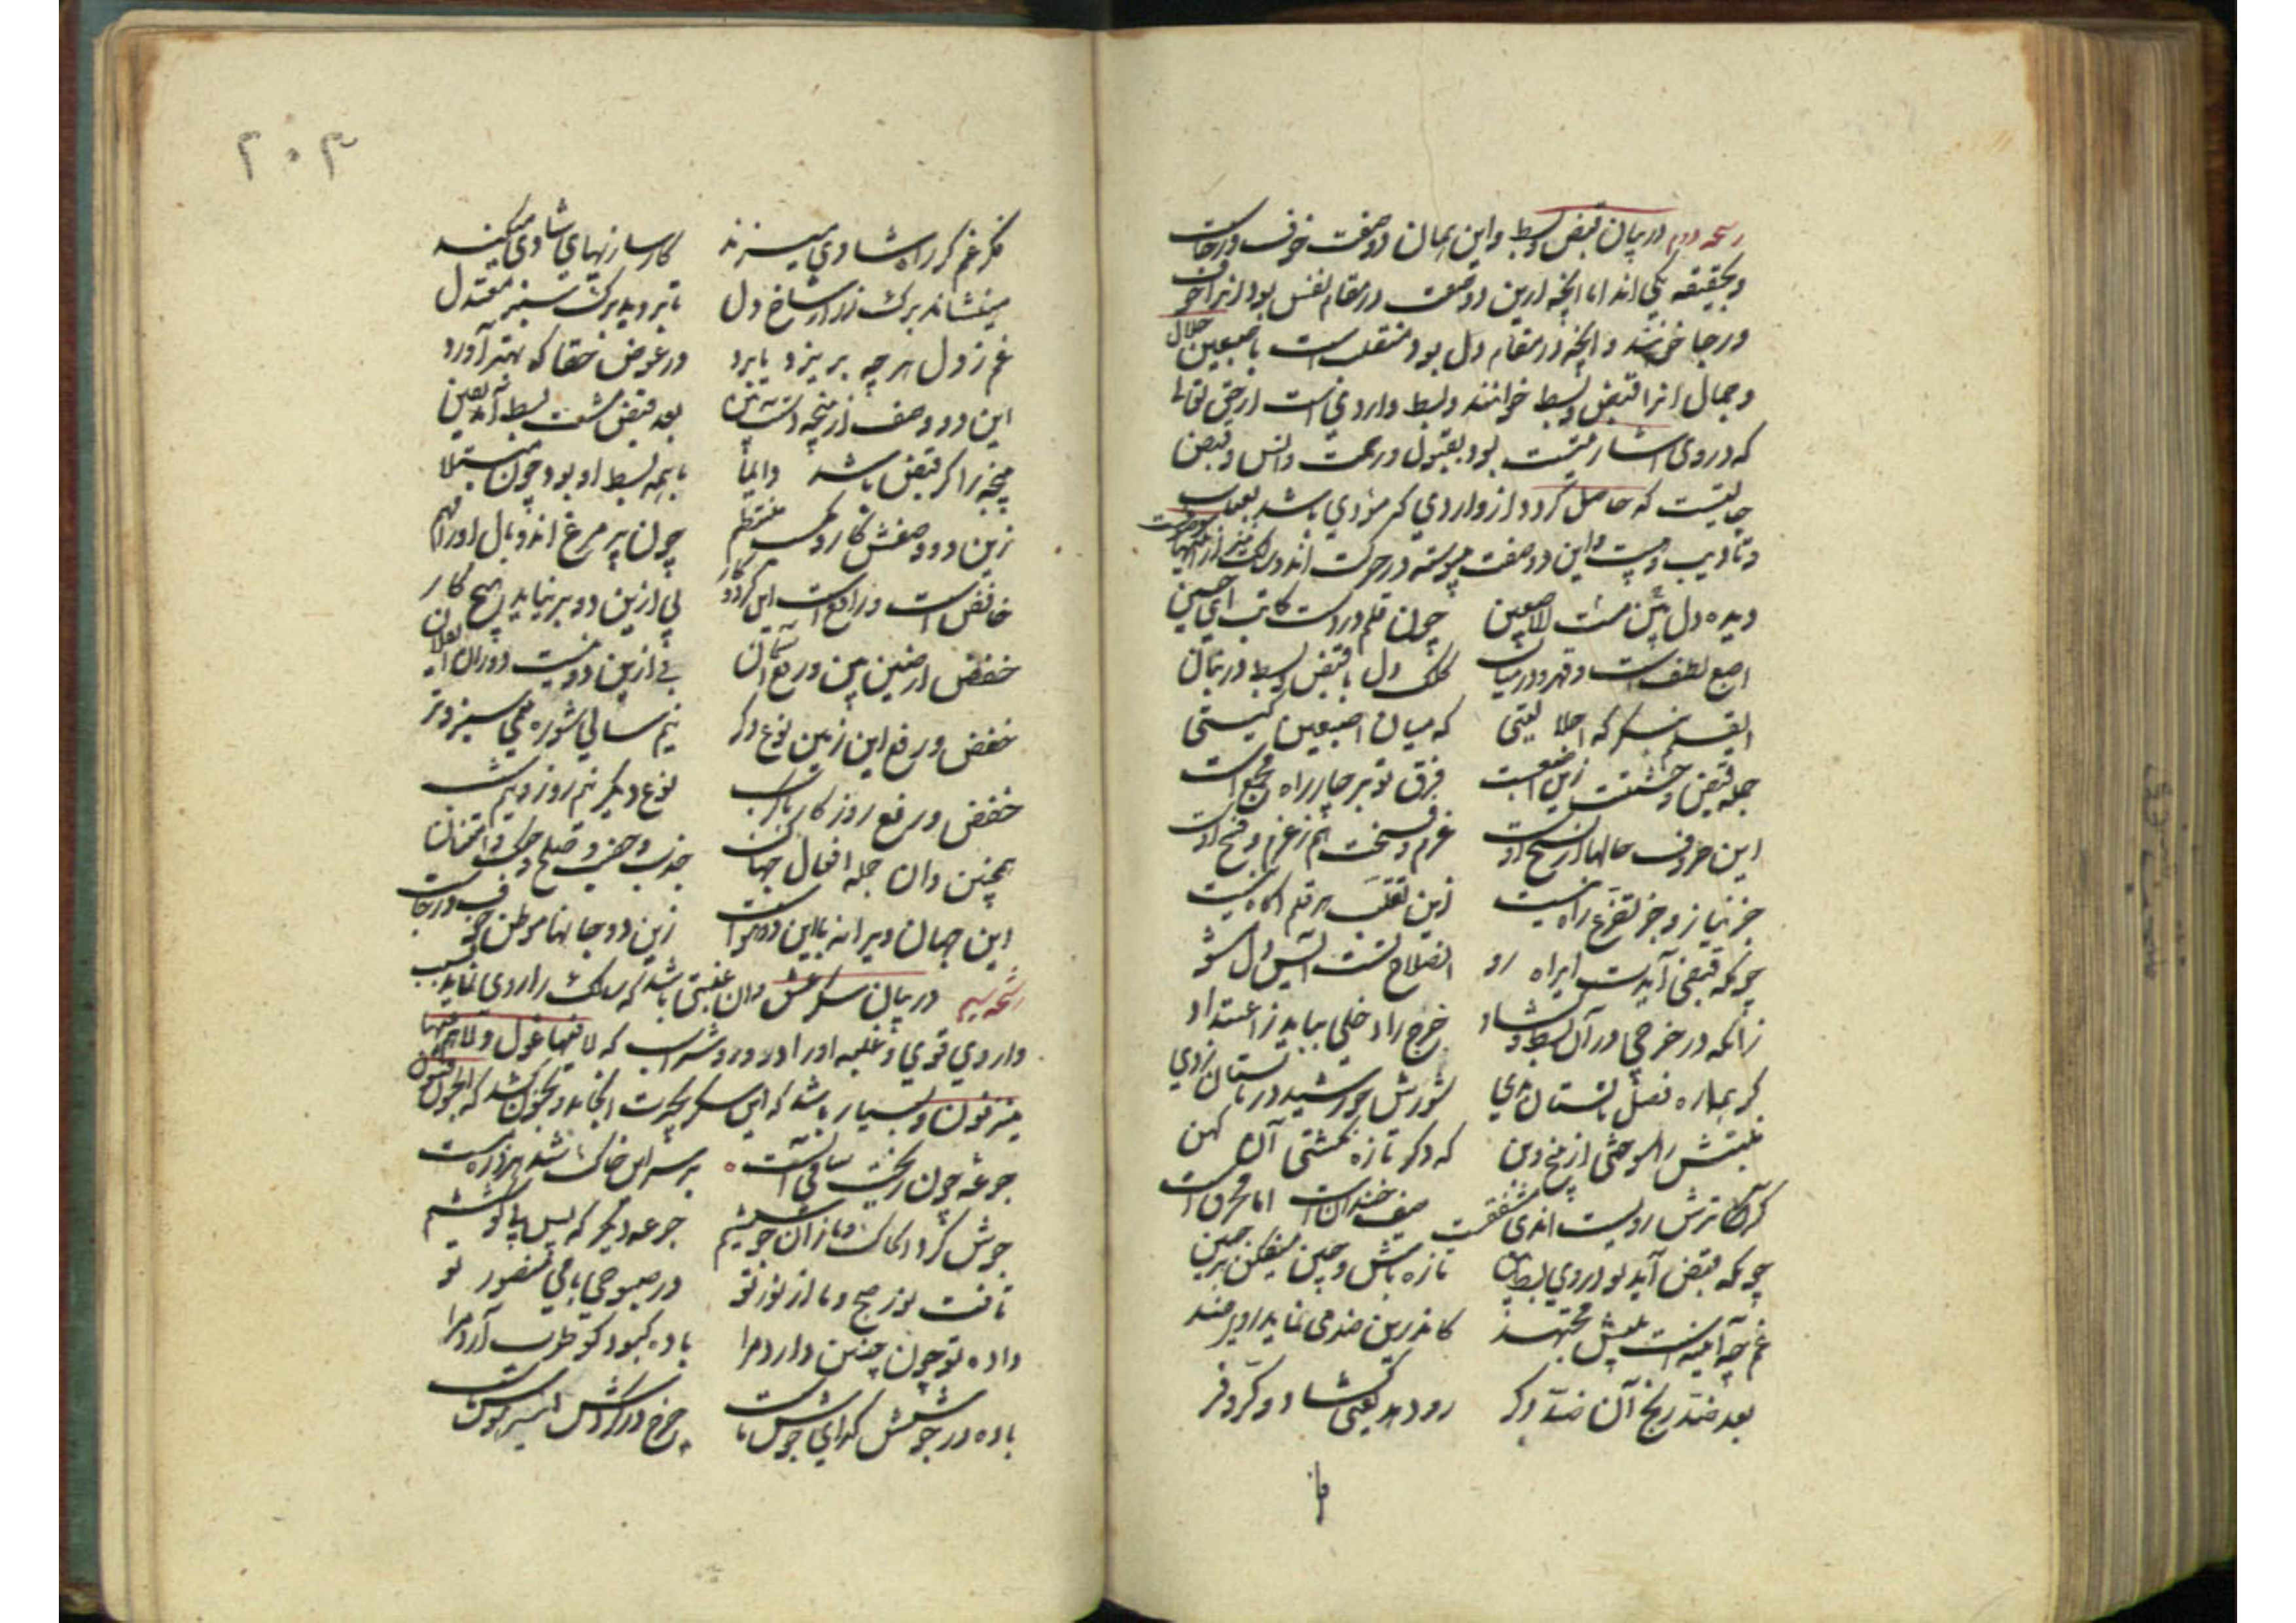 رشحه دوم در بیان قبض و بسط و این همان دو صفت خوف و رجاست
و بحقیقه یکی اند اما آنچه ازین دو صفت در مقام نفس بود آنرا خوف
و رجا خوانند و آنچه در مقام دل بود منقلب است باصبعین جلال
و جمال آنرا قبض و بسط خوانند و بسط واردیست از حق تعالی
که در وی اشارتست بود بقبول و رحمت و انس و قبض
حالتیست که حاصل گردد از واردی که مؤدی باشد بعتاب
و تادیب و این دو صفت پیوسته در حرکت اند
دیده دل بین اصبعین چون قلم در دست کاتب ای حسین
اصبع لطفست و قهر و در میان کلک دل با قبض و بسط در بنان
ای قلم بنگر که اجلالیستی که میان اصبعین کیستی
جمله قبض و جنبشت زین اصبعست فرق تو بر چار راه مجمعست
این حروف حالهات از نسخ اوست عزم و فسخت هم ز عزم و فسخ اوست
جز نیاز و جز تضرع راه نیست زین تقلب هر قلم آگاه نیست
چونکه قبض آیدت ای راه رو آن صلاح تست آتش دل مشو
زانکه در خرجی در آن بسط و گشاد خرج را دخلی بباید ز اعتداد
گر هماره فصل تابستان بدی سوزش خورشید در بستان زدی
منبتش را سوختی از بیخ و بن که دگر تازه نگشتی آن کهن
گر ترش رویست آن دی مشفقست صیف خندانست اما محرقست
چونکه قبض آید تو در وی بسط بین تازه باش و چین میفکن بر جبین
غم چو آیینه است پیش مجتهد کاندرین ضد می نماید روی ضد
بعد ضد رنج آن ضد دگر رو دهد یعنی گشاد و کر و فر
۲۰۳
فکر غم گر راه شادی میزند کارسازیهای شادی میکند
میفشاند برگ زرد از شاخ دل تا بروید برگ سبز معتدل
غم ز دل هر چه بریزد یا برد در عوض حقا که بهتر آورد
این دو وصف از پنجه دستت ببین بعد قبض مشت بسط آید یقین
پنجه را گر قبض باشد دایما یا همه بسط او بود چون مبتلا
زین دو وصفش کار و مکسب منتظم چون پر مرغ اندو بال او را مهم
خافض است و رافع است این کردگار بی ازین دو بر نیاید هیچ کار
خفض ارضین بین و رفع آسمان بی ازین دو نیست دوران ای فلان
خفض و رفع این زمین نوع دگر نیم سالی شوره نیمی سبز و تر
خفض و رفع روزگار با کرب نوع دیگر نیم روز و نیم شب
همچنین دان جمله احوال جهان جدب و خصب و صلح و جنگ و امتحان
این جهان ویرانه با این دو هواست زین دو جانها موطن خوف و رجاست
رشحه سیم در بیان سکر عشق و آن غیبتی باشد که سالک را روی نماید بسبب
واردی قوی و غلبه او را در دور شراب که لا فیها غول و لا هم عنها
ینزفون و بسیار باشد که این سکر بحیرت انجامد و بجنون کشد که الجنون فنون
جرعه چون ریخت ساقی الست بر سر این خاک شد هر ذره مست
جوش کرد آن خاک و ما زان جوششیم جرعه دیگر که بس بی کوششیم
تافت نور صبح و ما از نور تو در صبوحی با می منصور تو
داده تو چون چنین دارد مرا باده کبود کو طرب آرد مرا
باده در جوشش گدای جوش ماست چرخ در گردش اسیر هوش ماست